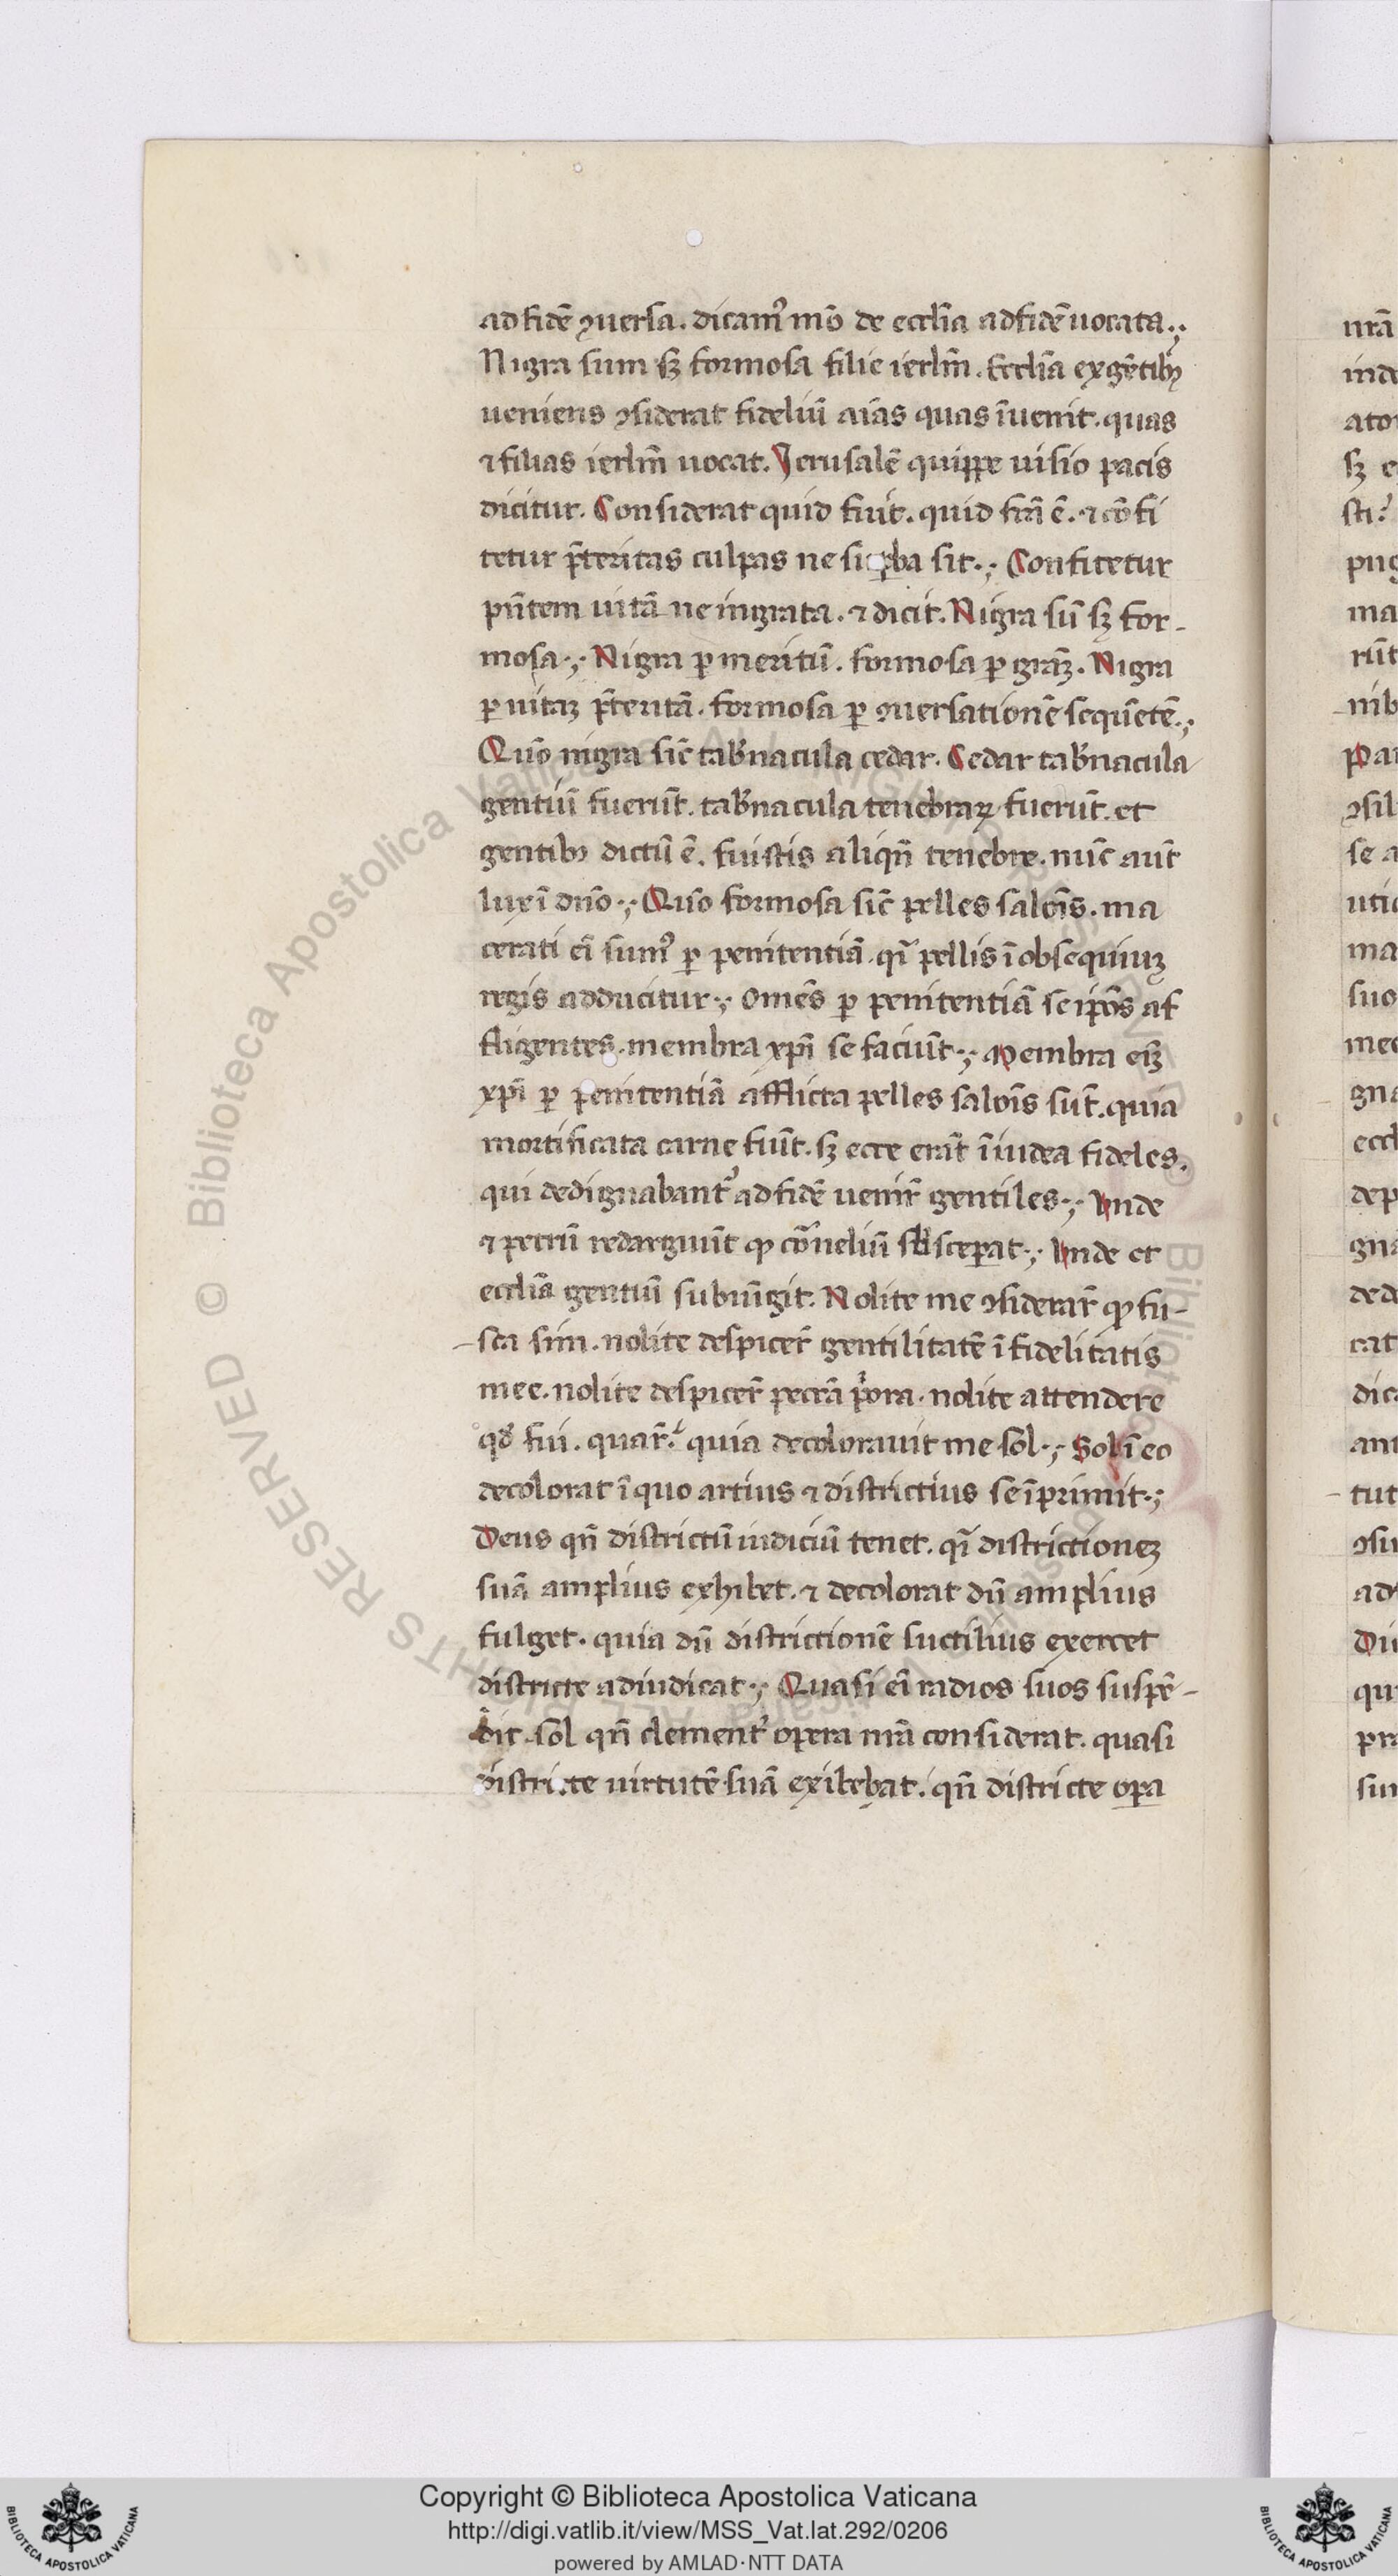 ad fidē ꝯuersa. dicamꝰ mō de ecclīa ad fidē uocata.;
Nigra sum sꝫ formosa filie ierlm̄. Ecclīa ex gētibꝰ
ueniens ꝯsiderat fideliū aīas quas īuenit. quas
⁊ filias ierlm̄ uocat. Jerusalē quippe uisio pacis
dicitur. Considerat quid fuit. quid fc̄a ē. ⁊ cōfi
tetur p̄teritas culpas ne suꝑba sit.; Confitetur
pn̄tem uitā ne ingrata. ⁊ dicit. Nigra sū sꝫ for-
mosa.; Nigra ꝑ meritū. formosa ꝑ gr̄aꝫ. Nigra
ꝑ uitaꝫ p̄teritā. formosa ꝑ ꝯuersationē sequētē.;
Quō nigra sic̄ tab̄nacula cedar. Cedar tab̄nacula
gentiū fuerūt. tab̄nacula tenebraꝝ fuerūt. et
gentibꝰ dictū ē. fuistis aliqn̄ tenebre. nūc aūt
lux ī dn̄o.; Quō formosa sic̄ pelles salōīs. ma
cerati eī sumꝰ ꝑ penitentiā. qī pellis ī obsequiuꝫ
regis adducitur.; omēs ꝑ penitentiā se ip̄os af
fligentes. membra xp̄i se faciūt.; Membra eīꝫ
xp̄i ꝑ penitentiā afflicta pelles salōīs sūt. quia
mortificata carne fiūt. sꝫ ecce erāt ī iudea fideles.
qui dedignabantꝰ ad fidē uenir̄ gentiles.; Vnde
⁊ petrū redarguūt ꝙ cōrneliū sūsceperat.; Vnde et
ecclīa gentiū subiūgit. Nolite me ꝯsiderar̄ ꝙ fu-
sca sim. nolite despicer̄ gentilitatē īfidelitatis
mee. nolite despicer̄ pecc̄a p̄ora. nolite attendere
qd̄ fui. quar̄. quia decolorauit me sol.; Sol ī eo
decolorat ī quo artius ⁊ districtius se īprimit.;
Deus qn̄ districtū iudiciū tenet. qī districtioneꝫ
suā amplius exhibet. ⁊ decolorat dū amplius
fulget. quia dū districtionē suctilius exercet
districte adiudicat.; Quasi eī radios suos suspē-
dit sol qn̄ clementꝰ opera nr̄a considerat. quasi
districte uirtutē suā exibebat. qn̄ districte oꝑa
nrā
sꝫ
ma
Copyright © Biblioteca Apostolica Vaticana
http://digi.vatlib.it/view/MSS_Vat.lat.292/0206
powered by AMLAD·NTT DATA